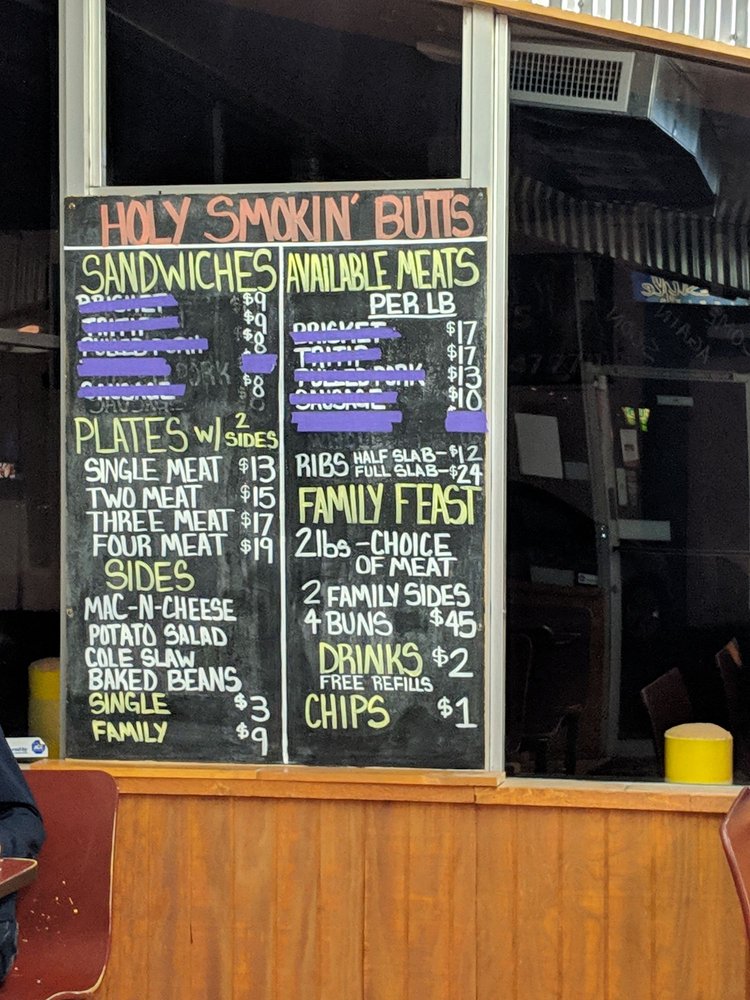 HOLY SMOKIN' BUTTS
SANDWICHES
BRISKET $9
TRITIP $9
PULLED PORK $8
PORK
SAUSAGE $8
SAUSAGE
PLATES W/ 2 SIDES
SINGLE MEAT $13
TWO MEAT $15
THREE MEAT $17
FOUR MEAT $19
SIDES
MAC-N-CHEESE
POTATO SALAD
COLE SLAW
BAKED BEANS
SINGLE $3
FAMILY $9
AVAILABLE MEATS
PER LB
BRISKET $17
TRITIP $17
PULLED PORK $13
SAUSAGE $10
RIBS HALF SLAB-$12
FULL SLAB-$24
FAMILY FEAST
2lbs-CHOICE
OF MEAT
2 FAMILY SIDES
4 BUNS $45
DRINKS $2
FREE REFILLS
CHIPS $1